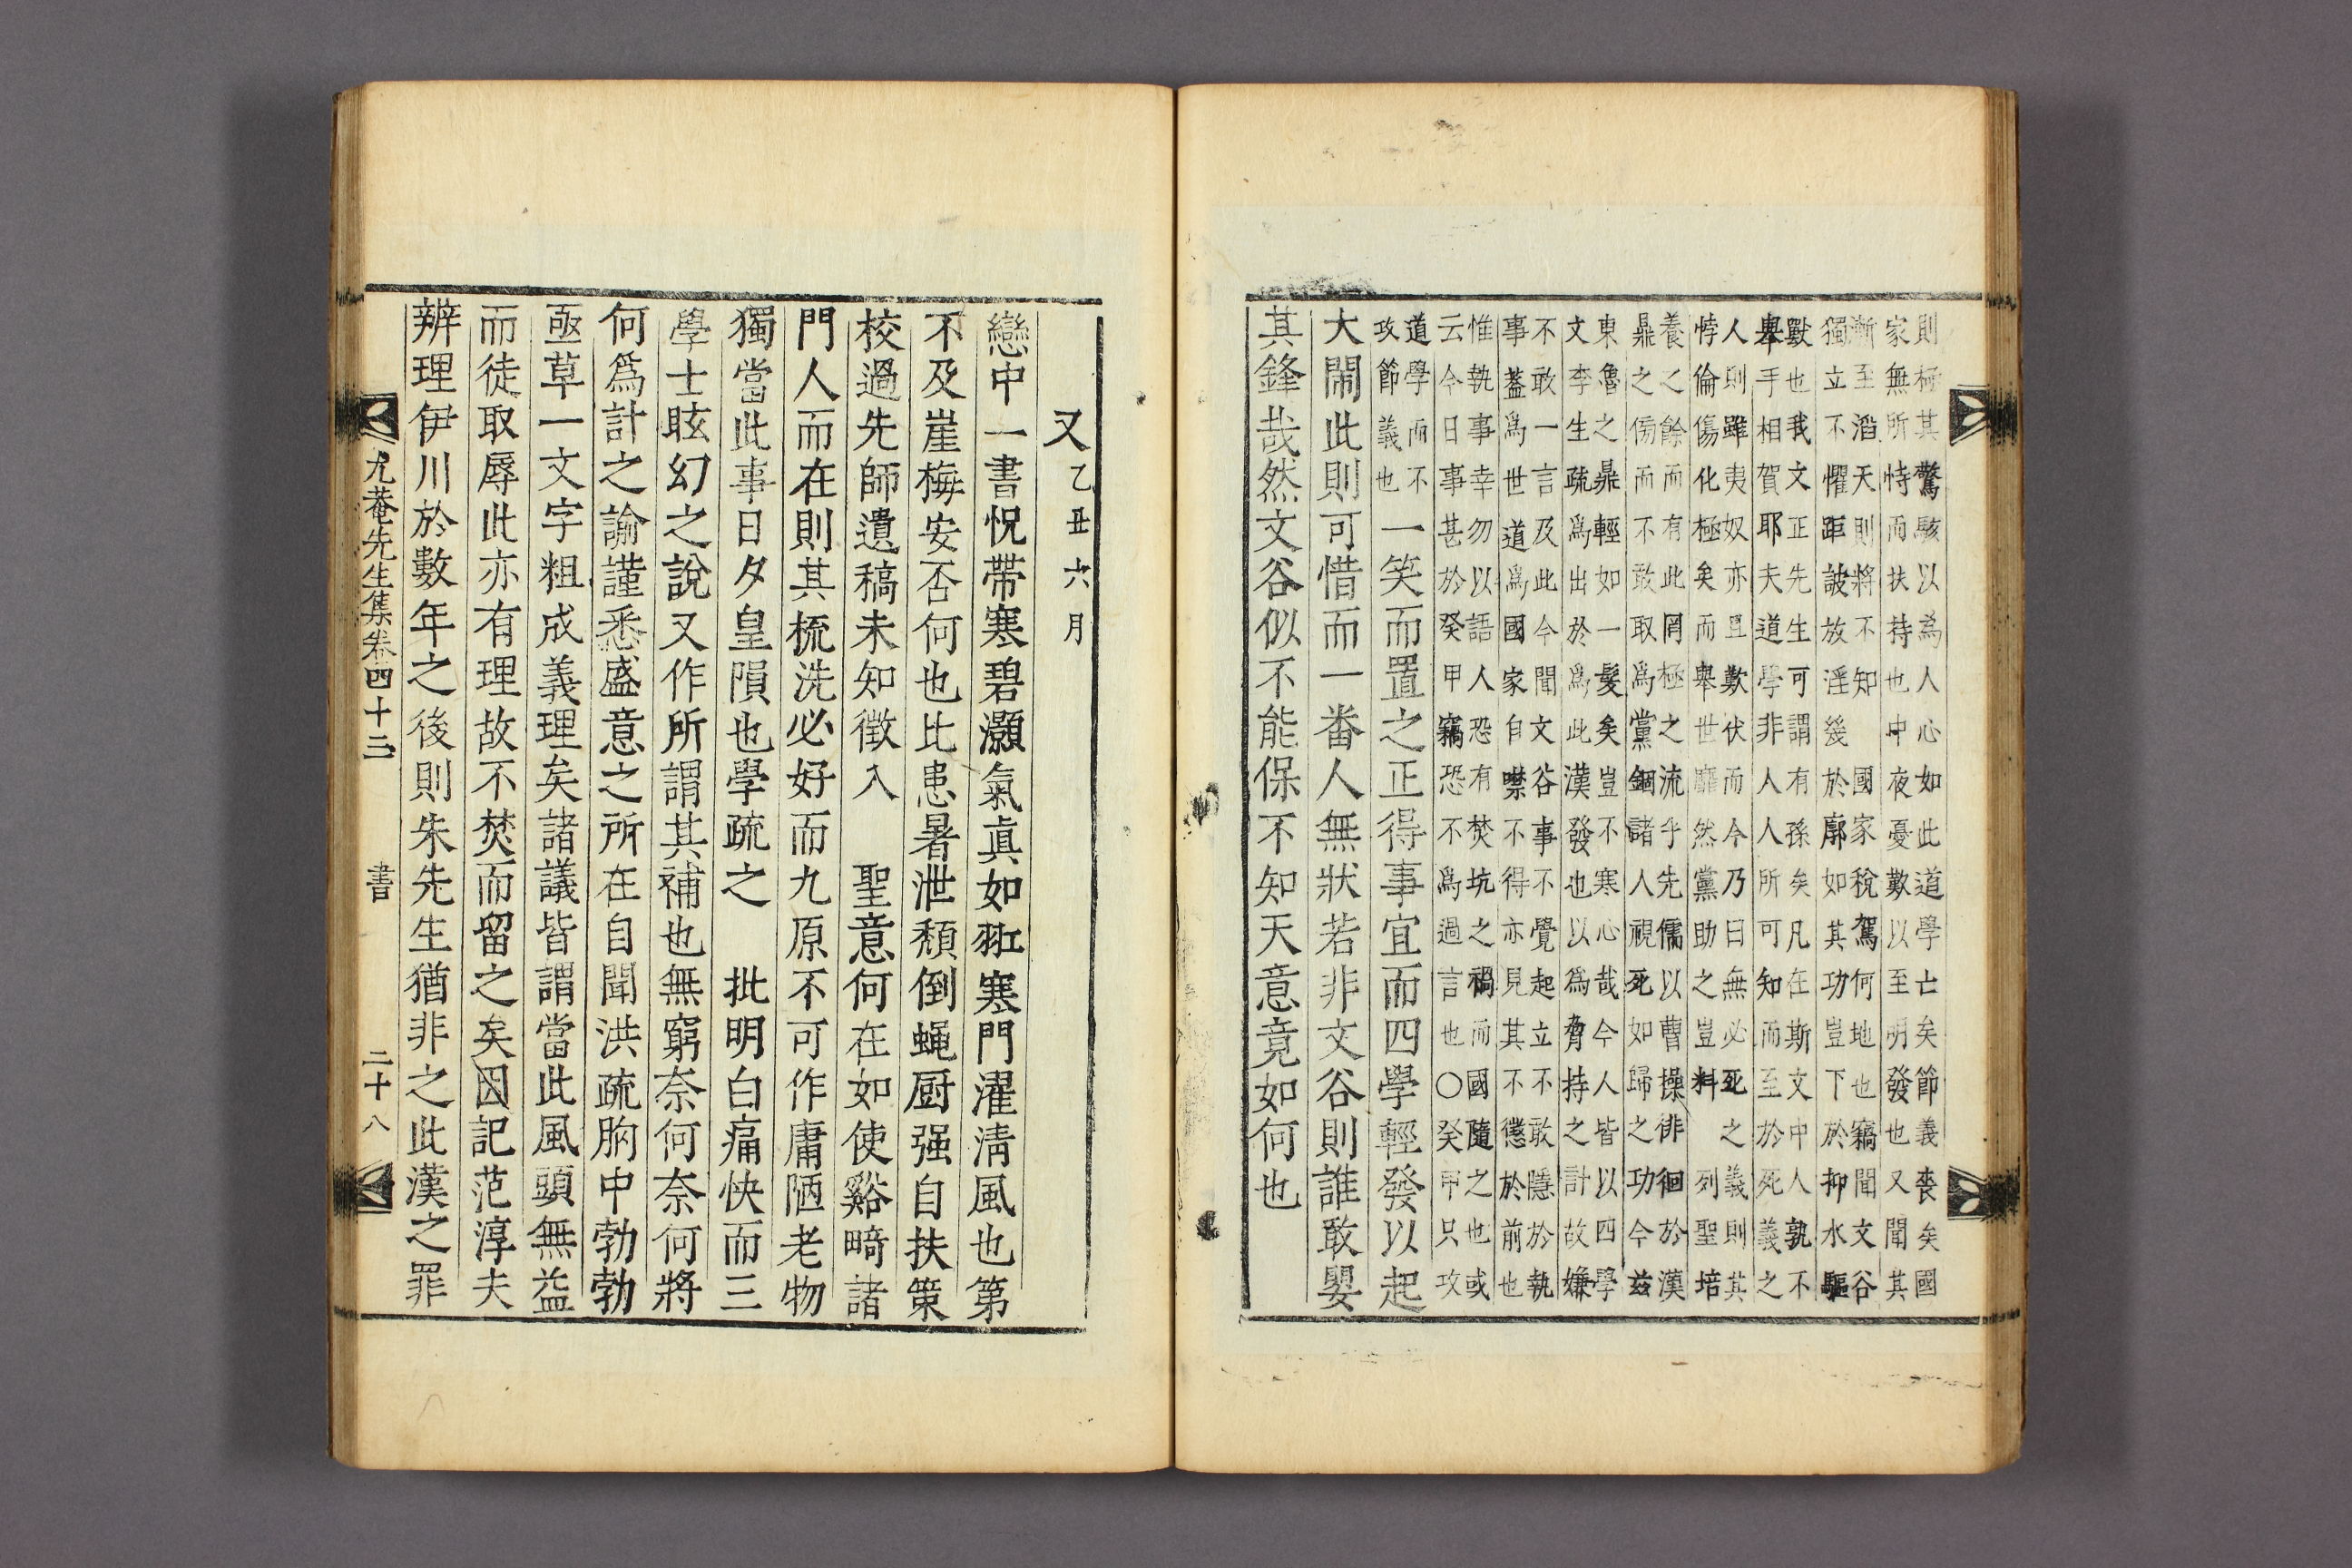 則極其驚駭以爲人心如此道學亡矣節義喪矣國
家無所恃而扶持也中夜憂歎以至明發也又聞其
漸至滔天則將不知 國家稅駕何地也竊聞文谷
獨立不懼距詖放淫幾於廓如其功豈下於抑水驅
獸也我文正先生可謂有孫矣凡在斯文中人孰不
擧手相賀耶夫道學非人人所可知而至於死義之
人則雖夷奴亦且歎伏而今乃曰無必死之義則其
悖倫傷化極矣而擧世靡然黨助之豈料 列聖培
養之餘而有此罔極之流乎先儒以曹操徘徊於漢
鼎之傍而不敢取爲黨錮諸人視死如歸之功今玆
東魯之鼎輕如一髮矣豈不寒心哉今人皆以四學
文李生疏爲出於爲此漢發也以爲脅持之計故嫌
不敢一言及此今聞文谷事不覺起立不敢隱於執
事蓋爲世道爲國家自噤不得亦見其不懲於前也
惟執事幸勿以語人恐有焚坑之禍而國隨之也或
云今日事甚於癸甲竊恐不爲過言也○癸甲只攻
道學而不
攻節義也
一笑而置之正得事宜而四學輕發以起
大鬧此則可惜而一番人無狀若非文谷則誰敢嬰
其鋒哉然文谷似不能保不知天意竟如何也
又乙丑六月
戀中一書怳帶寒碧灝氣眞如羾寒門濯淸風也第
不及崖梅安否何也比患暑泄頹倒蠅厨强自扶策
校過先師遺稿未知徵入 聖意何在如使谿畸諸
門人而在則其梳洗必好而九原不可作庸陋老物
獨當此事日夕皇隕也學疏之 批明白痛快而三
學士眩幻之說又作所謂其補也無窮奈何奈何將
何爲計之諭謹悉盛意之所在自聞洪疏胸中勃勃
亟草一文字粗成義理矣諸議皆謂當此風頭無益
而徒取辱此亦有理故不焚而留之矣因記范淳夫
辨理伊川於數年之後則朱先生猶非之此漢之罪
尤菴先生集卷四十三 書 二十八